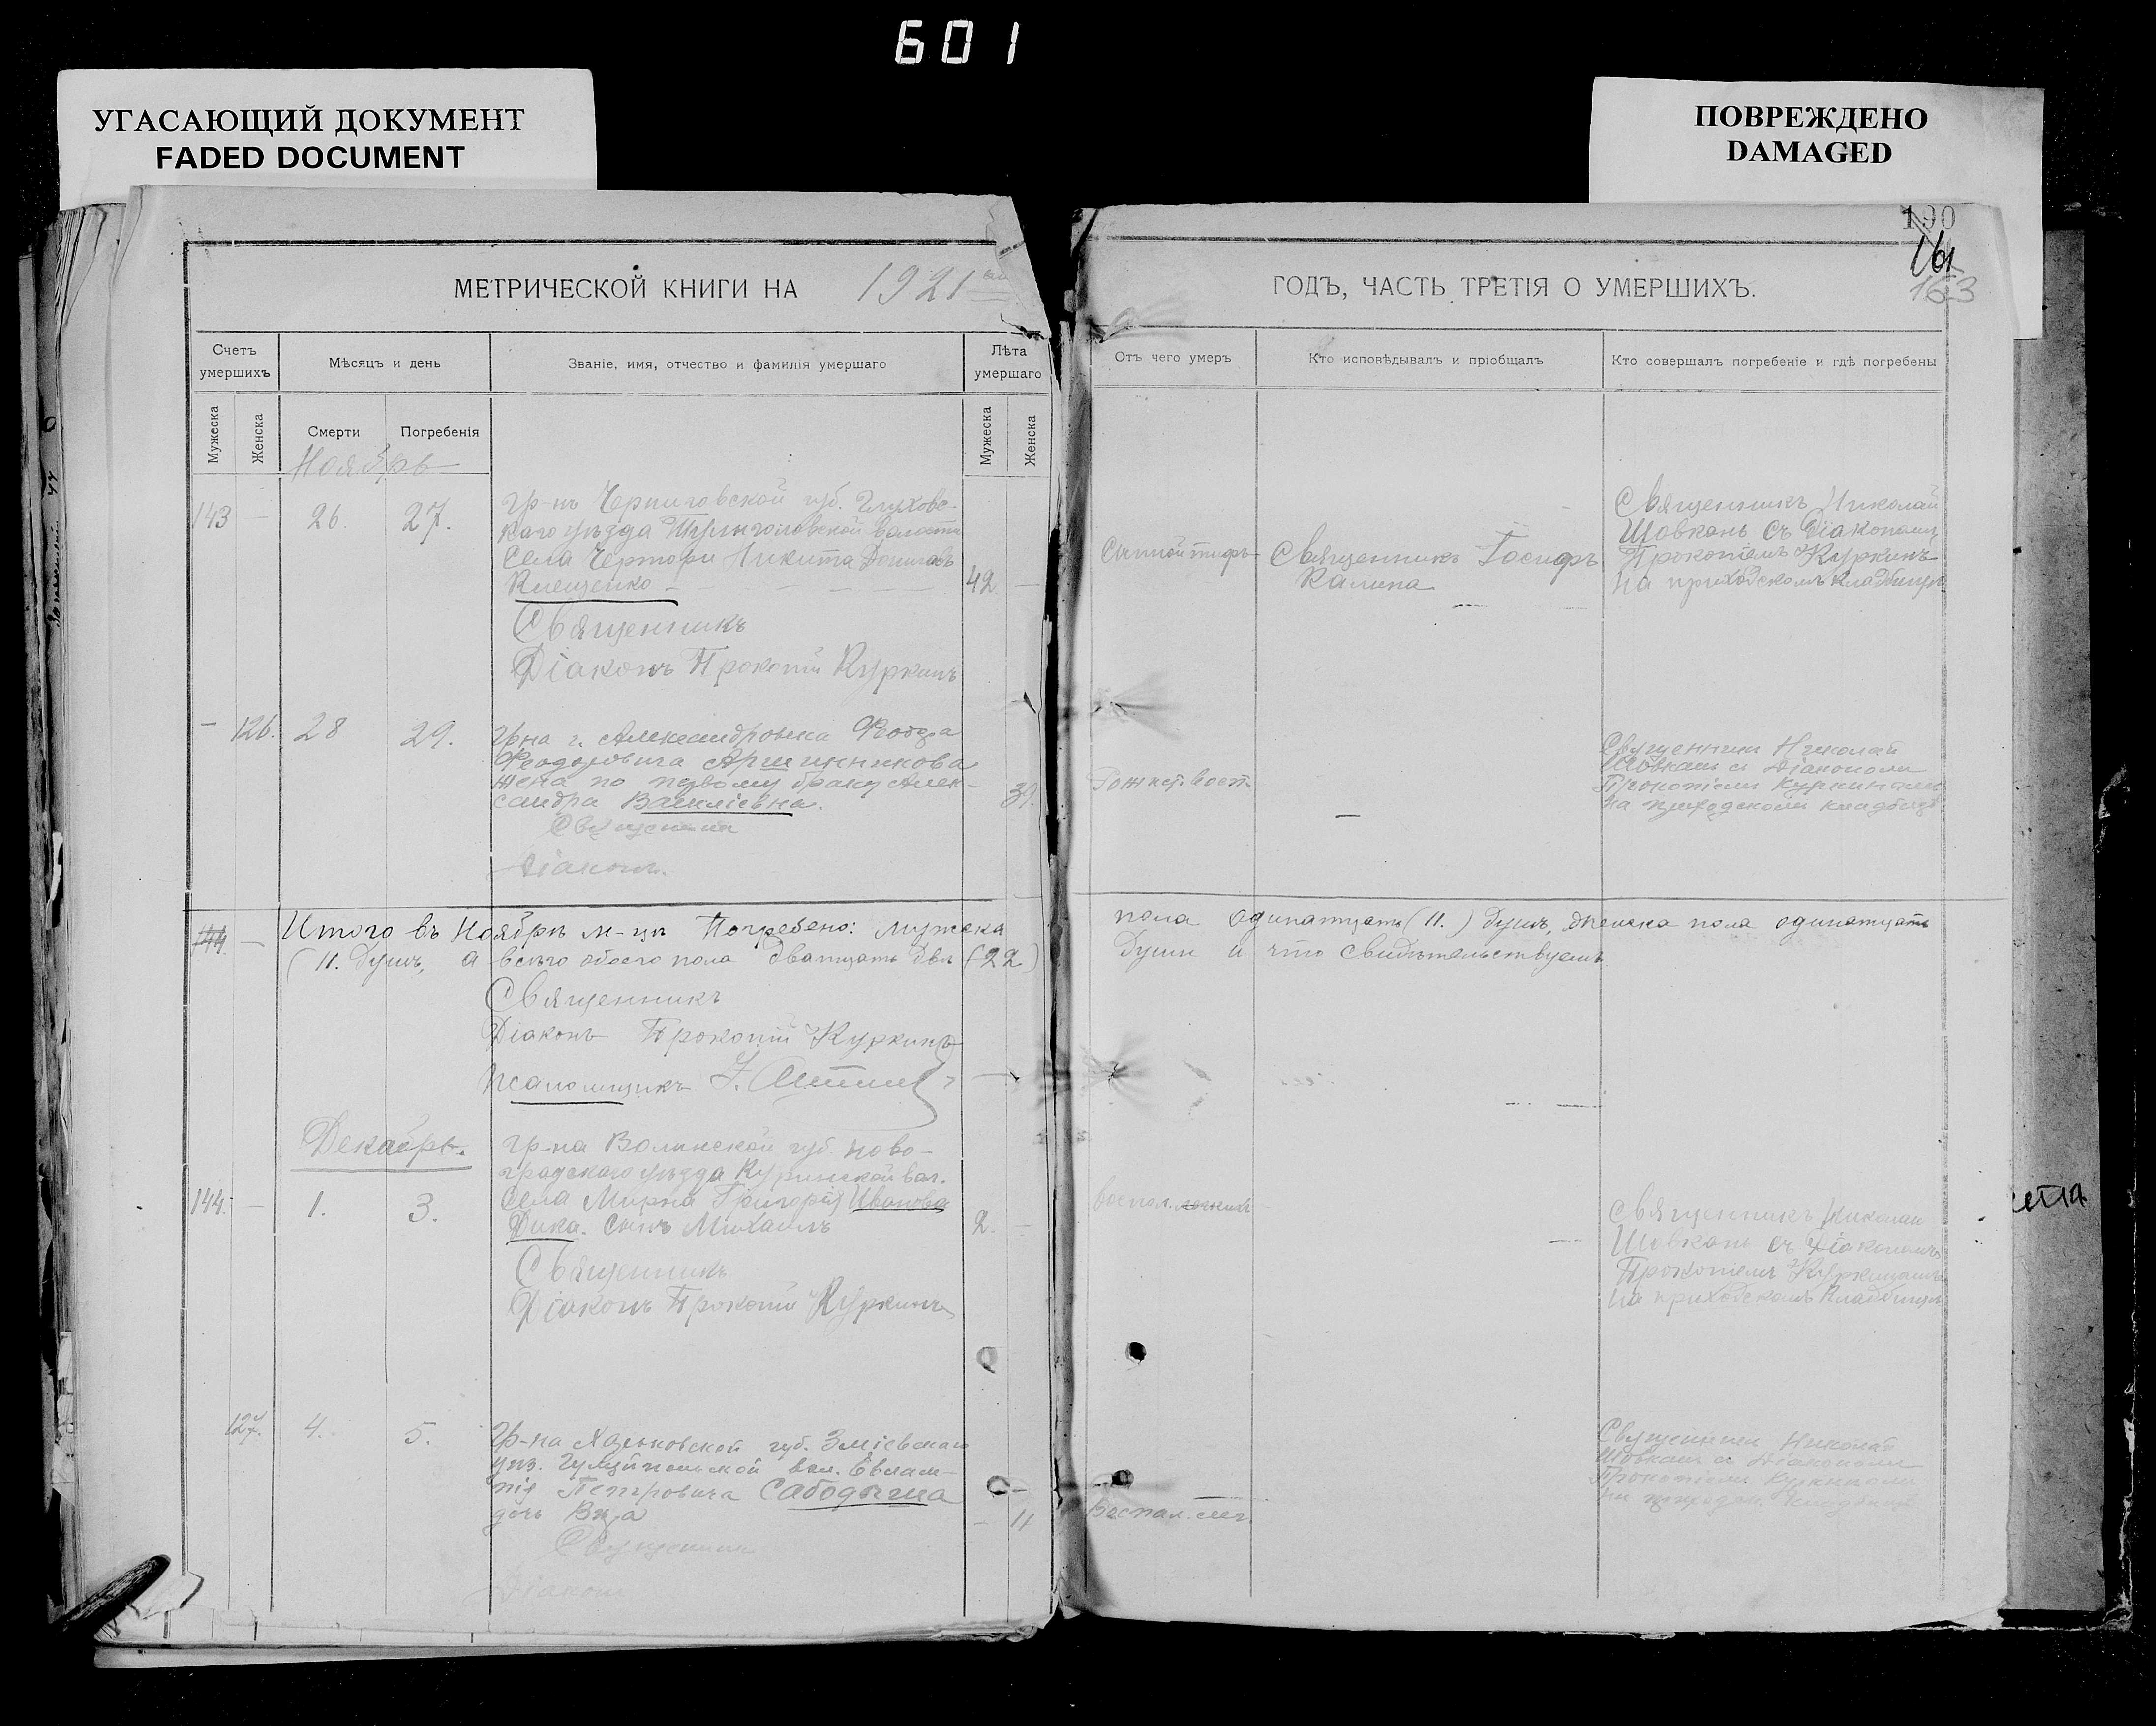 601
УГАСАЮЩИЙ ДОКУМЕНТ
FADED DOCUMENT
ПОВРЕЖДЕНО
DAMAGED
МЕТРИЧЕСКОЙ КНИГИ НА 1921
Счетъ умершихъ
Мѣсяцъ и день
Званіе, имя, отчество и фамилія умершаго
Лѣта умершаго
Мужеска
Женска
Смерти
Погребенія
Мужеска
Женска
Ноябрь
143 — 26. 27.
гр-нъ Черниговской губ. Глуховс-
каго уѣзда
Села Никита
42 —
Священникъ
Діаконъ Прокопій Куркинъ
— 126. 28 29.
Гр-на г. Александровска
жена по первому браку Алек-
сандра Васильевна.
39.
Священникъ
Діаконъ
144. — Итого въ Ноябрѣ м-цѣ Погребено: мужеска
(11. душъ, а всего обоего пола дватцать двѣ (22)
Священникъ
Діаконъ Прокопій Куркинъ
Псаломщикъ
Декабрь.
144. — 1. 3.
гр-на Волынской губ. Ново-
градскаго уѣзда Куринской вол.
Села Мирна Григорія Иванова
Дика. сынъ Михаилъ
2. —
Священникъ
Діаконъ Прокопій Куркинъ
127. 4. 5.
Гр-на Харьковской губ. Зміевскаго
уѣз. вол. Евлам-
пія Петровича
дочь Вѣра
— 11
Священникъ
Діаконъ
100
161
163
ГОДЪ, ЧАСТЬ ТРЕТІЯ О УМЕРШИХЪ.
Отъ чего умеръ
Кто исповѣдывалъ и пріобщалъ
Кто совершалъ погребеніе и гдѣ погребены
Сыпной тифъ
Священникъ Іосифъ
Калина
Священникъ Николай
Шовкань съ Діакономъ
Прокопіемъ Куркинъ
на приходскомъ кладбищѣ
Священникъ Николай
Шовкань съ Діакономъ
Прокопіемъ Куркинымъ
на приходскомъ кладбищѣ
пола одинатцать (11.) душъ, женска пола одинатцать
души и что свидѣтельствуемъ
воспал. легкихъ
Священникъ Николай
Шовкань съ Діакономъ
Прокопіемъ Куркинымъ
на приходскомъ кладбищѣ
Воспал. лег.
Священникъ Николай
Шовкань съ Діакономъ
Прокопіемъ Куркинымъ